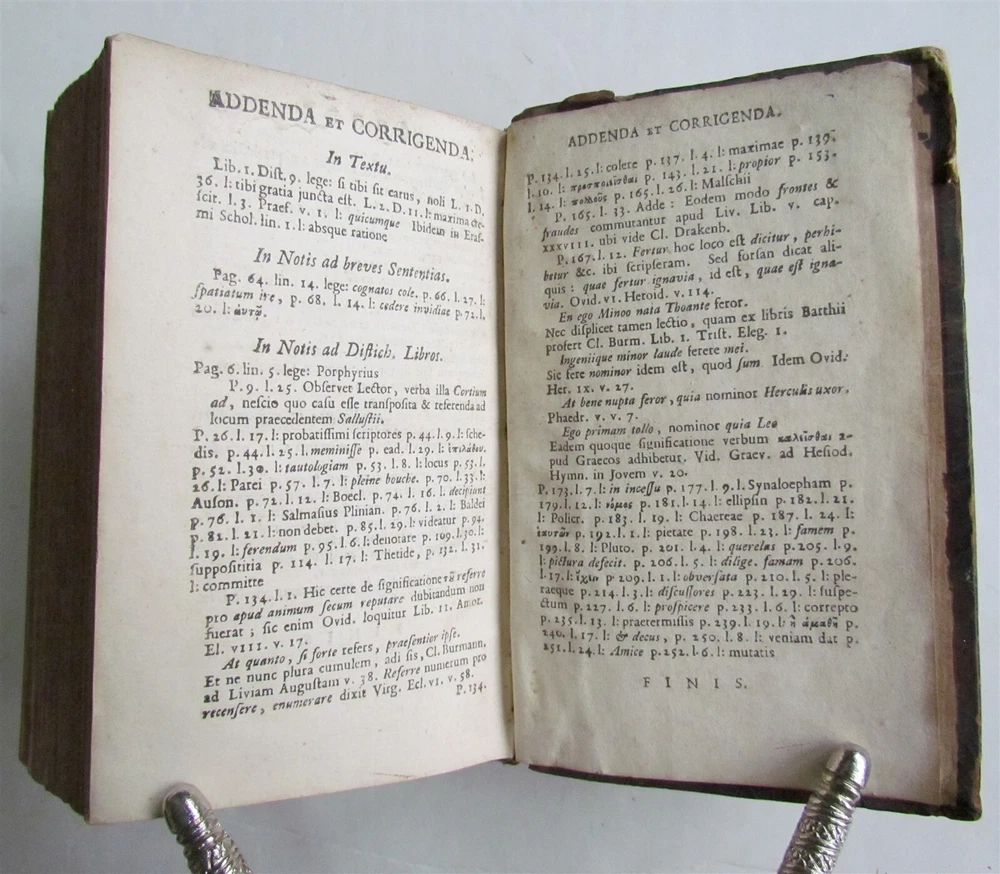 ADDENDA ET CORRIGENDA.
In Textu.
Lib. 1. Dist. 9. lege: si tibi sit carus, noli L. 1. D.
36. l: tibi gratia juncta est. L. 2. D. 11. l: maxima cre-
scit. l. 3. Praef. v. 1. l: quicumque Ibidem in Eras-
mi Schol. lin. 1. l: absque ratione
In Notis ad breves Sententias.
Pag. 64. lin. 14. lege: cognatos cole. p. 66. l. 27. l:
spatiatum ire, p. 68. l. 14. l: cedere invidiae p. 72. l.
20. l: αυτῷ.
In Notis ad Distich. Libros.
Pag. 6. lin. 5. lege: Porphyrius
P. 9. l. 25. Observet Lector, verba illa Cortium
ad, nescio quo casu esse transposita & referenda ad
locum praecedentem Sallustii.
P. 26. l. 17. l: probatissimi scriptores p. 44. l. 9. l: sche-
dis. p. 44. l. 25. l. meminisse p. ead. l. 29. l:
p. 52. l. 30. l: tautologiam p. 53. l. 8. l: locus p. 53. l.
26. l: Parei p. 57. l. 7. l: pleine bouche. p. 70. l. 33. l:
Auson. p. 72. l. 12. l: Boecl. p. 74. l. 16. l: decipiunt
p. 76. l. 1. l: Salmasius Plinian. p. 76. l. 2. l: Baldei
p. 82. l. 21. l: non debet. p. 85. l. 29. l: videatur p. 94.
l. 19. l: ferendum p. 95. l. 6. l: denotare p. 109. l. 30. l:
suppositItia p. 114. l. 17. l: Thetide, p. 132. l. 31.
l: committe
P. 134. l. 1. Hic certe de significatione τῦ referre
pro apud animum secum reputare dubitandum non
fuerat; sic enim Ovid. loquitur Lib. 11. Amor.
El. VIII. v. 17.
At quanto, si forte refers, praesentior ipse.
Et ne nunc plura cumulem, adi sis, Cl. Burmann.
ad Liviam Augustam v. 38. Referre numerum pro
recensere, enumerare dixit Virg. Ecl. VI. v. 58.
P. 134.
ADDENDA ET CORRIGENDA.
P. 134. l. 25. l: colere p. 137. l. 4. l: maximae p. 139.
l. 10. l: προσποιεῖσθαι p. 143. l. 21. l: propior p. 153.
l. 14. l: πολλοὺς p. 165. l. 26. l: Malschii
P. 165. l. 33. Adde: Eodem modo frontes &
fraudes commutantur apud Liv. Lib. V. cap.
XXXVIII. ubi vide Cl. Drakenb.
P. 167. l. 12. Fertur hoc loco est dicitur, perhi-
betur &c. ibi scripseram. Sed forsan dicat ali-
quis: quae fertur ignavia, id est, quae est igna-
via. Ovid. VI. Heroid. v. 114.
En ego Minoo nata Thoante feror.
Nec displicet tamen lectio, quam ex libris Barthii
profert Cl. Burm. Lib. 1. Trist. Eleg. 1.
Ingeniique minor laude ferere mei.
Sic fere nominor idem est, quod sum Idem Ovid.
Her. IX. v. 27.
At bene nupta feror, quia nominor Herculis uxor.
Phaedr. v. v. 7.
Ego primam tollo, nominor quia Leo
Eadem quoque significatione verbum καλεῖσθαι a-
pud Graecos adhibetur. Vid. Graev. ad Hesiod.
Hymn. in Jovem v. 20.
P. 173. l. 7. l: in incessu p. 177. l. 9. l. Synaloepham p.
179. l. 12. l: νόμος p. 181. l. 14. l: ellipsin p. 182. l. 21.
l: Policr. p. 183. l. 19. l: Chaereae p. 187. l. 24. l:
ἑαυτῶν p. 192. l. 1. l: pietate p. 198. l. 23. l: famem p.
199. l. 8. l: Pluto. p. 201. l. 4. l: querelas p. 205. l. 9.
l: pictura defecit. p. 206. l. 5. l: dilige. famam p. 206.
l. 17. l: p. 209. l. 1. l: obversata p. 210. l. 5. l: ple-
raeque p. 214. l. 3. l: discussores p. 223. l. 29. l: suspe-
ctum p. 227. l. 6. l: prospicere p. 233. l. 6. l: correpto
p. 235. l. 13. l: praetermissis p. 239. l. 19. l: ἢ ἀμαθῆ p.
240. l. 17. l: & decus, p. 250. l. 8. l: veniam dat p.
251. l. 24. l: Amice p. 252. l. 6. l: mutatis
FINIS.